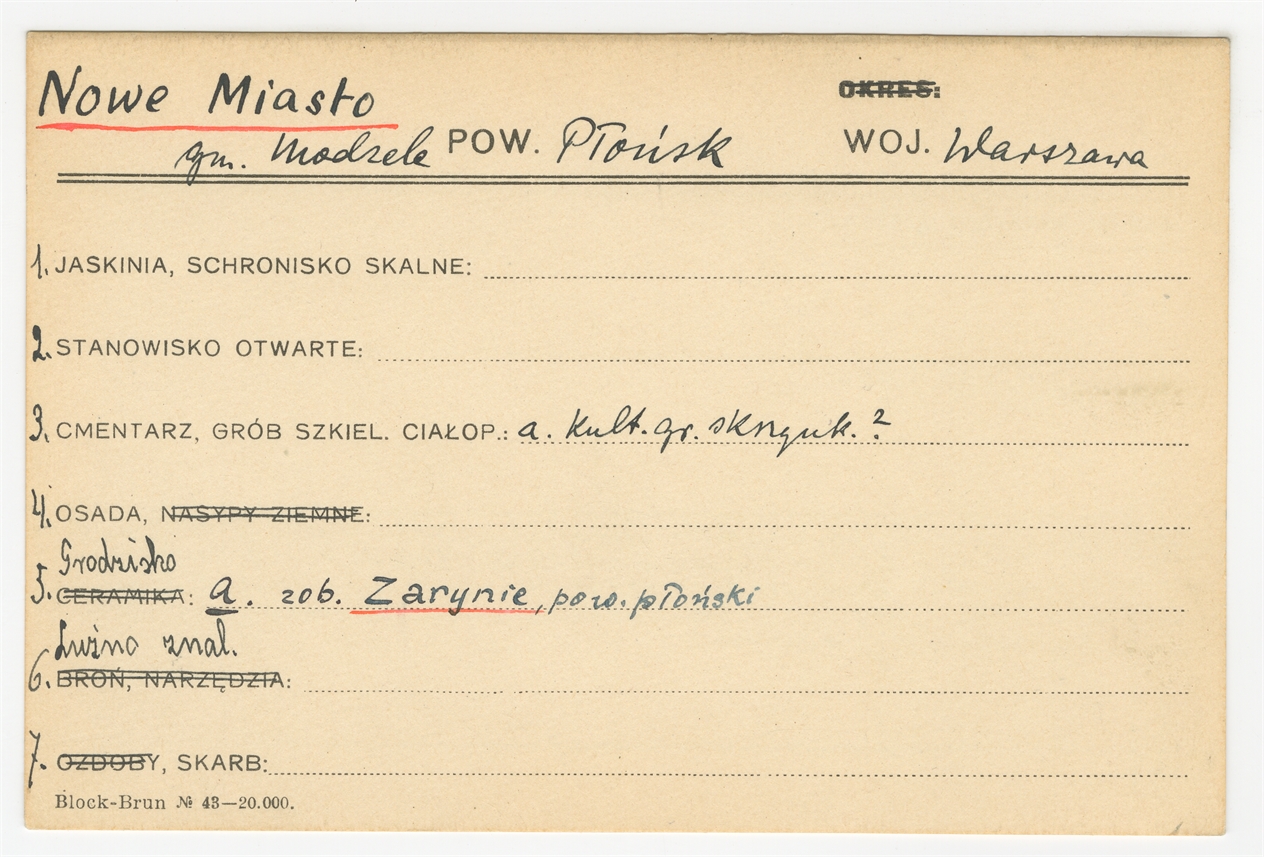 Nowe Miasto OKRES:
gm. Modzele POW. Płońsk WOJ. Warszawa
1. JASKINIA, SCHRONISKO SKALNE:
2. STANOWISKO OTWARTE:
3. CMENTARZ, GRÓB SZKIEL. CIAŁOP.: a. kult. gr. skrzynk. ?
4. OSADA, NASYPY ZIEMNE:
Grodzisko
5. CERAMIKA: a. zob. Zarynie, pow. płoński
Luźno znal.
6. BROŃ, NARZĘDZIA:
7. OZDOBY, SKARB:
Block-Brun № 43—20.000.